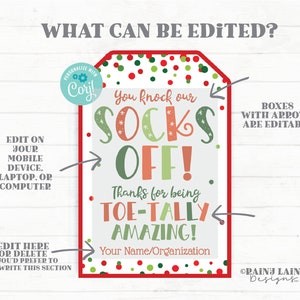 WHAT CAN BE EDITED?
PERSONALIZE WITH
Corjl
You knock our
SOCKS
OFF!
Thanks for being
TOE-TALLY
AMAZING!
Your Name/Organization
BOXES
WITH ARROW
ARE EDITAB
EDIT ON
YOUR
MOBILE
DEVICE,
LAPTOP, OR
COMPUTER
EDIT HERE
OR DELETE
YOU'D PREFER TO
WRITE THIS SECTION
©RAINJ LAIN
DESIGNS